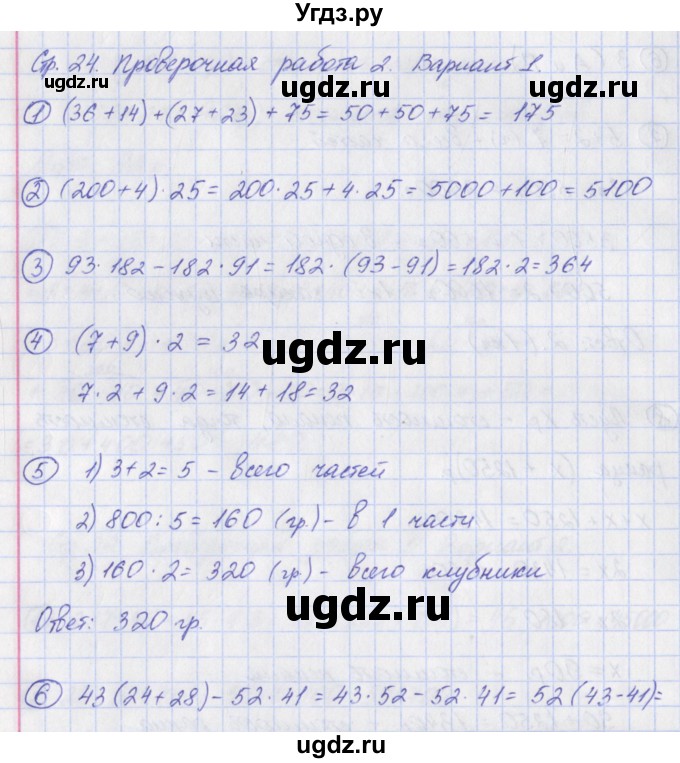 Угдз.ру
Стр. 24. Проверочная работа 2. Вариант 1.
ugdz.ru ugdz.ru
① (36 + 14) + (27 + 23) + 75 = 50 + 50 + 75 = 175
② (200 + 4) · 25 = 200 · 25 + 4 · 25 = 5000 + 100 = 5100
③ 93 · 182 - 182 · 91 = 182 · (93 - 91) = 182 · 2 = 364
④ (7 + 9) · 2 = 32
ugdz.ru
7 · 2 + 9 · 2 = 14 + 18 = 32
⑤ 1) 3 + 2 = 5 - всего частей
2) 800 : 5 = 160 (гр.) - в 1 части
3) 160 · 2 = 320 (гр) - всего клубники
ugdz.ru
Ответ: 320 гр.
⑥ 43 (24 + 28) - 52 · 41 = 43 · 52 - 52 · 41 = 52 (43 - 41) =
ugdz.ru